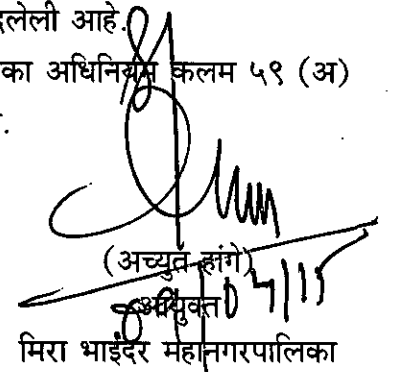 लेली आहे.
का अधिनियम कलम ५९ (अ)
(अच्युत हांगे)
आयुक्त
मिरा भाईंदर महानगरपालिका